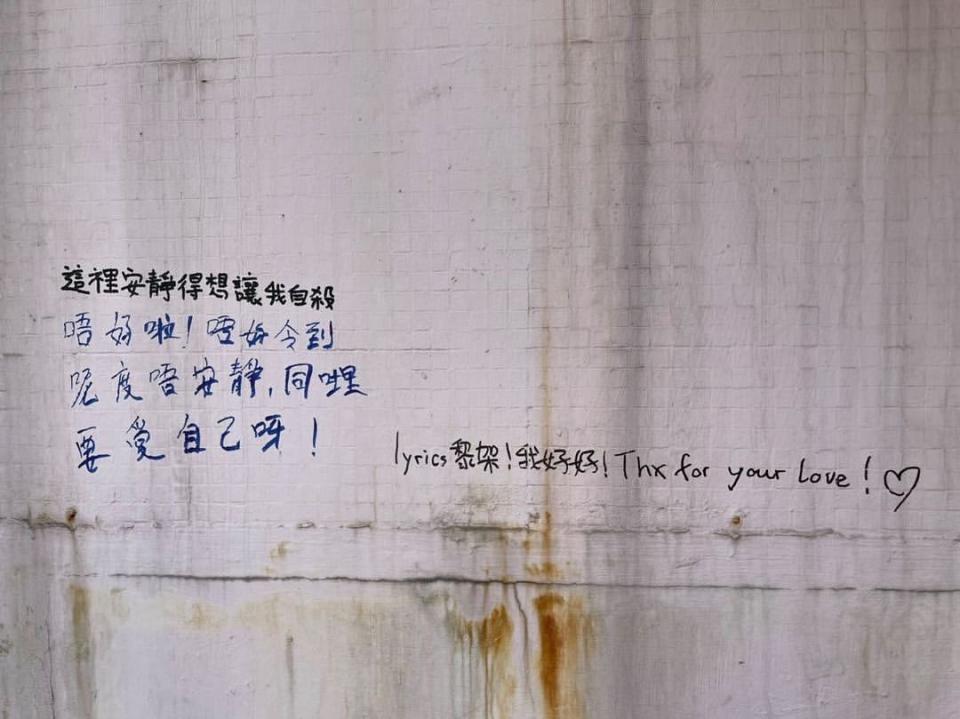 這裡安靜得想讓我自殺
唔好啦！唔好令到
呢度唔安靜，同埋
要愛自己呀！
lyrics黎架！我好好！Thx for your love！♡